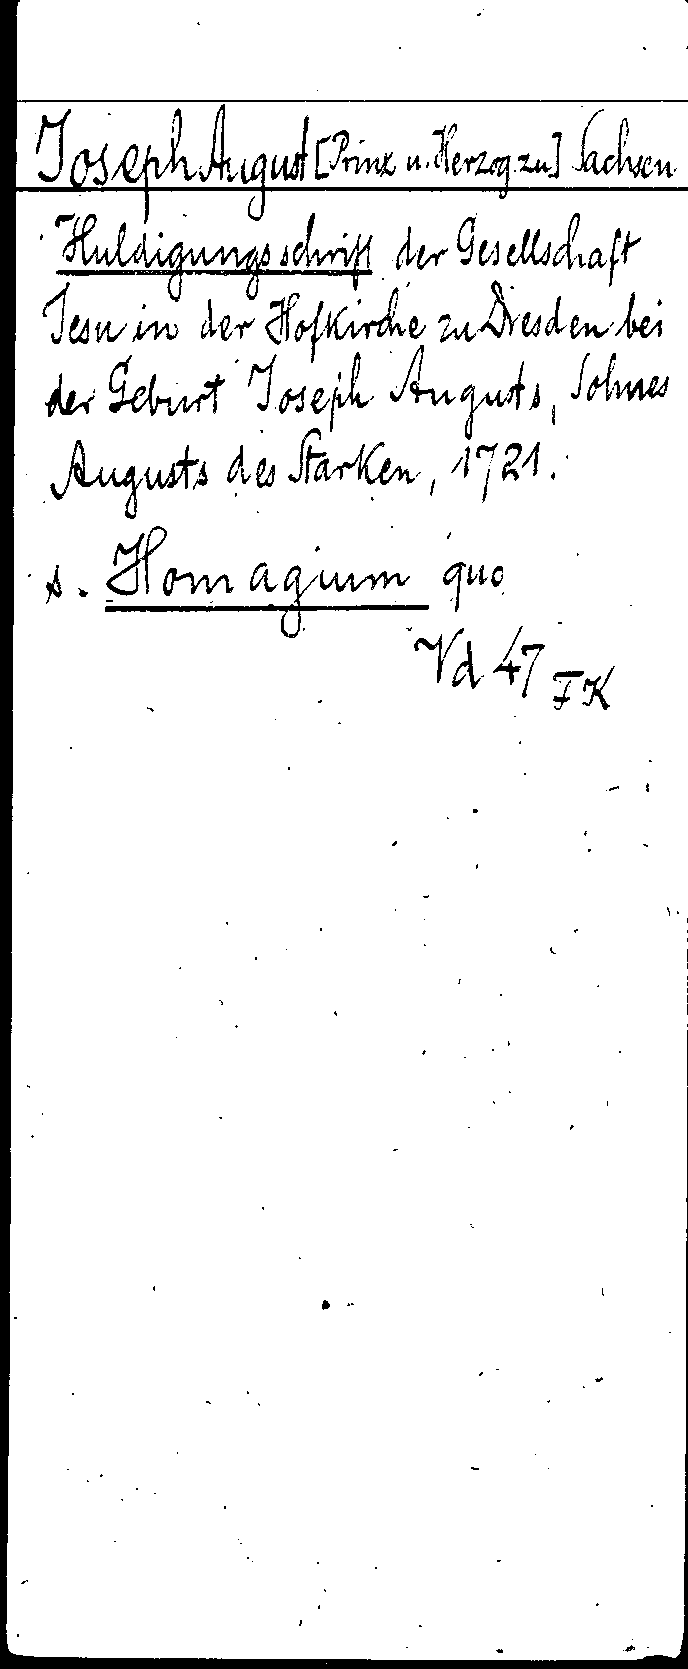 Joseph August [Prinz u. Herzog zu] Sachsen
Huldigungsschrift der Gesellschaft
Jesu in der Hofkirche zu Dresden bei
der Geburt Joseph Augusts, Sohnes
Augusts des Starken, 1721.
s. Homagium quo
Vd 47 FK